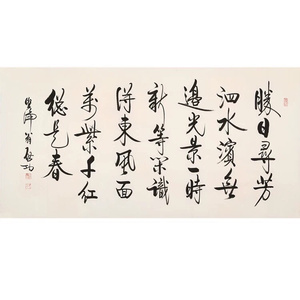 勝日尋芳
泗水濱無
邊光景一時
新等閑識
得東風面
萬紫千紅
總是春